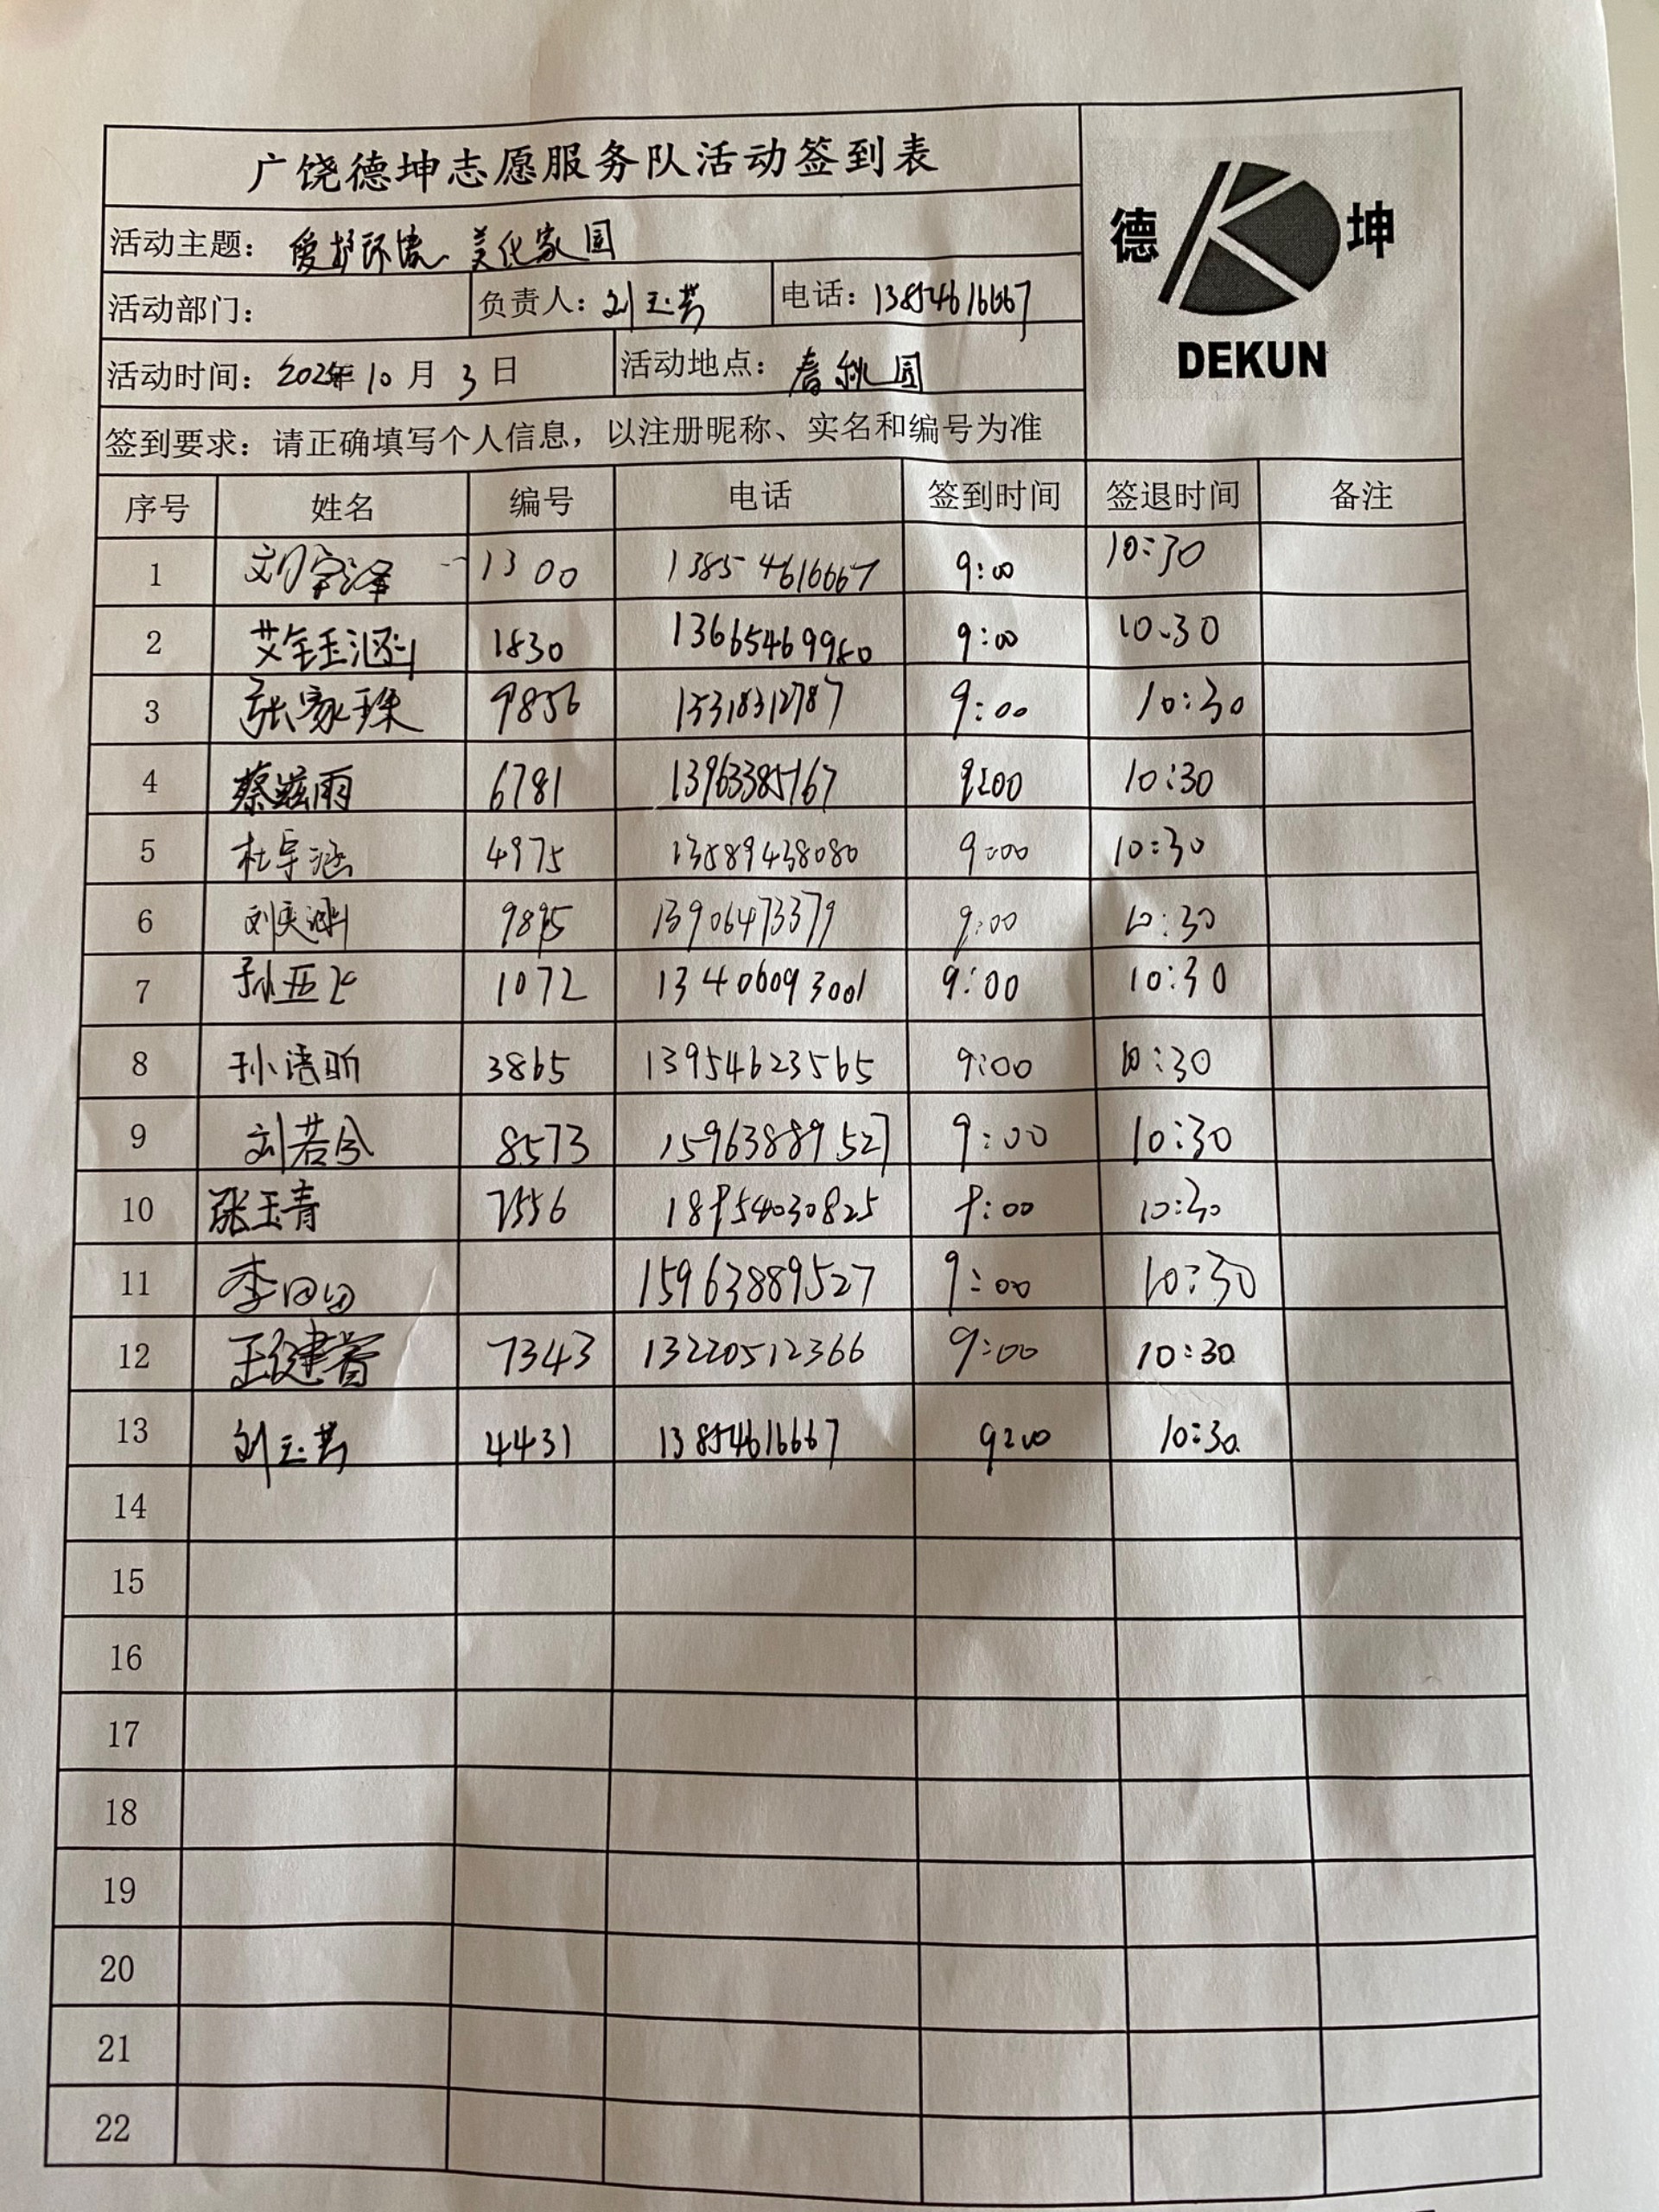 广饶德坤志愿服务队活动签到表
德 坤
DEKUN
活动主题：爱护环境 美化家园
活动部门： 负责人：刘玉芳 电话：13854616667
活动时间：202 年10月3日 活动地点：春秋园
签到要求：请正确填写个人信息，以注册昵称、实名和编号为准
序号 姓名 编号 电话 签到时间 签退时间 备注
1 刘宇泽 1300 13854616667 9:00 10:30
2 艾钰涵 1830 13665469980 9:00 10:30
3 张家珠 9856 15318312787 9:00 10:30
4 蔡滋雨 6781 13963385167 9:00 10:30
5 杜宇涵 4975 13589438080 9:00 10:30
6 刘奕涵 9895 13906473379 9:00 10:30
7 孙亚 1072 13406093001 9:00 10:30
8 孙浩昕 3865 13954623565 9:00 10:30
9 刘若 8573 15963889527 9:00 10:30
10 张玉青 7556 18954030825 9:00 10:30
11 李田田 15963889527 9:00 10:30
12 王健睿 7343 13220512366 9:00 10:30
13 刘玉芳 4431 13854616667 9:00 10:30
14
15
16
17
18
19
20
21
22